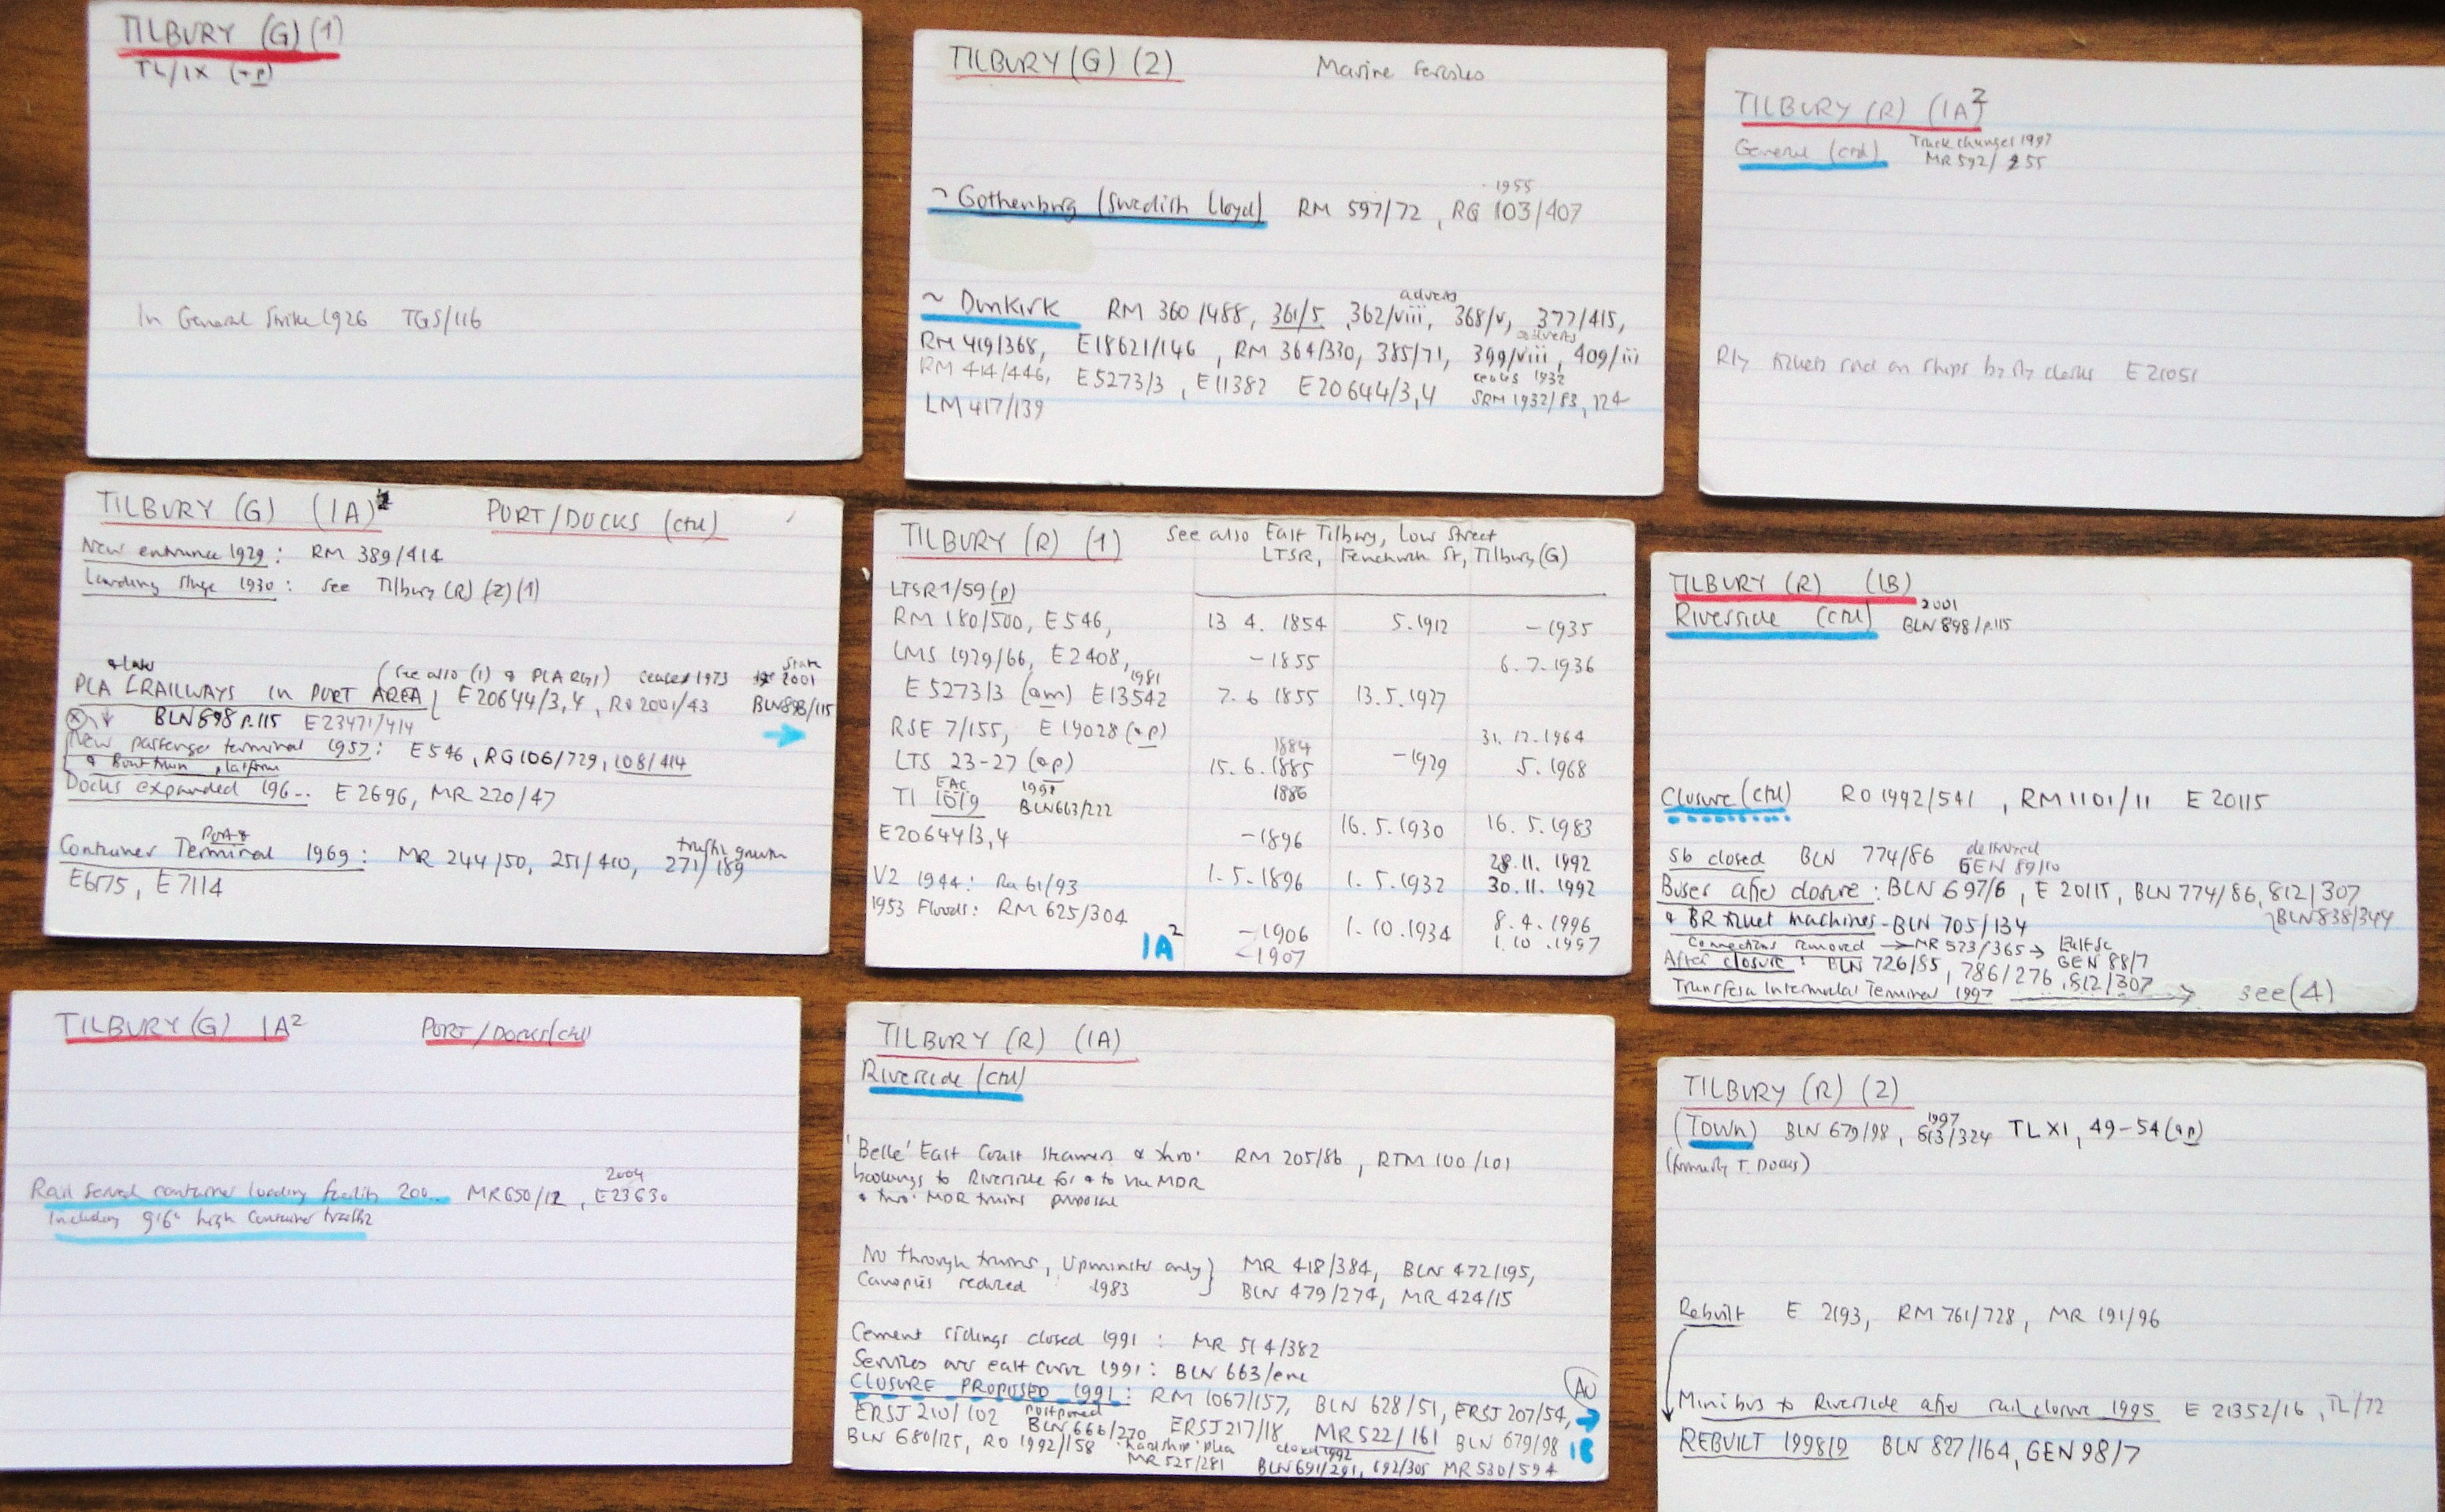 TILBURY (G) (1)
TL/IX (+p)
In General Strike 1926 TGS/116
TILBURY (G) (2) Marine Services
~ Gothenburg (Swedish Lloyd) RM 597/72, RG 103/407
1955
adverts
~ Dunkirk RM 360/488, 361/5, 362/viii, 368/v, 377/415,
adverts
RM 419/368, E18621/146, RM 364/330, 385/71, 399/viii, 409/iii
RM 414/446, E5273/3, E11382 E20644/3,4
ceases 1932
SRM 1932/83, 124
LM 417/139
TILBURY (R) (1A)2
General (ctd) Track changes 1997
MR 592/255
Rly tickets sold on ships by rly clerks E21051
TILBURY (G) (1A) PORT/DOCKS (ctd)
New entrance 1929: RM 389/414
Landing stage 1930: see Tilbury (R) (2)(1)
& later (see also (1) & PLA Rlys) ceased 1973 State 2001
PLA RAILWAYS IN PORT AREA E20644/3,4, RO 2001/43 BLN898/115
BLN 898 p.115 E23471/414
New passenger terminal 1957: E546, RG106/729, 108/414
& boat train platform
Docks expanded 196.. E2696, MR 220/47
Port &
Container Terminal 1969: MR 244/50, 251/410, 271/189
traffic growth
E6175, E7114
TILBURY (R) (1) See also East Tilbury, Low Street
LTSR, Fenchurch St, Tilbury (G)
LTSR1/59 (p)
RM 180/500, E546, 13 4. 1854 5.1912 -1935
LMS 1929/66, E2408, -1855 6.7.1936
1981
E5273/3 (am) E13542 7.6 1855 13.5.1927
RSE 7/155, E19028 (+p) 31.12.1964
1884
LTS 23-27 (+p) 15.6.1885 -1929 5.1968
EAC 1991 1886
TI 1619 BLN663/222
E20644/3,4 -1896 16.5.1930 16.5.1983
28.11.1992
V2 1944: Ra 61/93 1.5.1896 1.5.1932 30.11.1992
1953 Floods: RM 625/304 -1906 1.10.1934 8.4.1996
1A2 -1907 1.10.1997
TILBURY (R) (1B)
Riverside (ctd) 2001
BLN 898/p.115
Closure (ctd) RO 1992/541, RM1101/11 E 20115
Sb closed BLN 774/86 GEN 89/10
Buses after closure: BLN 697/6, E 20115, BLN 774/86, 812/307
& BR ticket machines - BLN 705/134 BLN838/344
Connections removed → MR 523/365 →
GEN 88/7
After closure: BLN 726/85, 786/276, 812/307
Transfesa Intermodal Terminal 1997 → see (4)
TILBURY (G) 1A2 PORT/DOCKS (ctd)
Rail served container loading facility 200.. MR650/12, E23630
2004
Including 9'6" high container traffic
TILBURY (R) (1A)
Riverside (ctd)
'Belle' East Coast steamers & thro' RM 205/86, RTM 100/101
bookings to Riverside for & to via MDR
& thro' MDR trains proposal
No through trains, Upminster only MR 418/384, BLN 472/195,
Canopies reduced 1983 BLN 479/274, MR 424/15
Cement sidings closed 1991: MR 514/382
Services over east curve 1991: BLN 663/enc
CLOSURE PROPOSED 1991: RM 1067/157, BLN 628/51, ERSJ 207/54,
ERSJ 210/102 postponed BLN 666/270 ERSJ 217/18 MR522/161 BLN 679/98 1B
BLN 680/125, RO 1992/158 'hardship' plea MR 525/281 closed 1992 BLN691/291, 692/305 MR 530/594
TILBURY (R) (2)
(Town) BLN 679/98, 813/324 TL XI, 49-54 (+p)
1997
(formerly T. Docks)
Rebuilt E 2193, RM 761/728, MR 191/96
Minibus to Riverside after rail closure 1995 E 21352/16, TL/72
REBUILT 1998/9 BLN 827/164, GEN 98/7